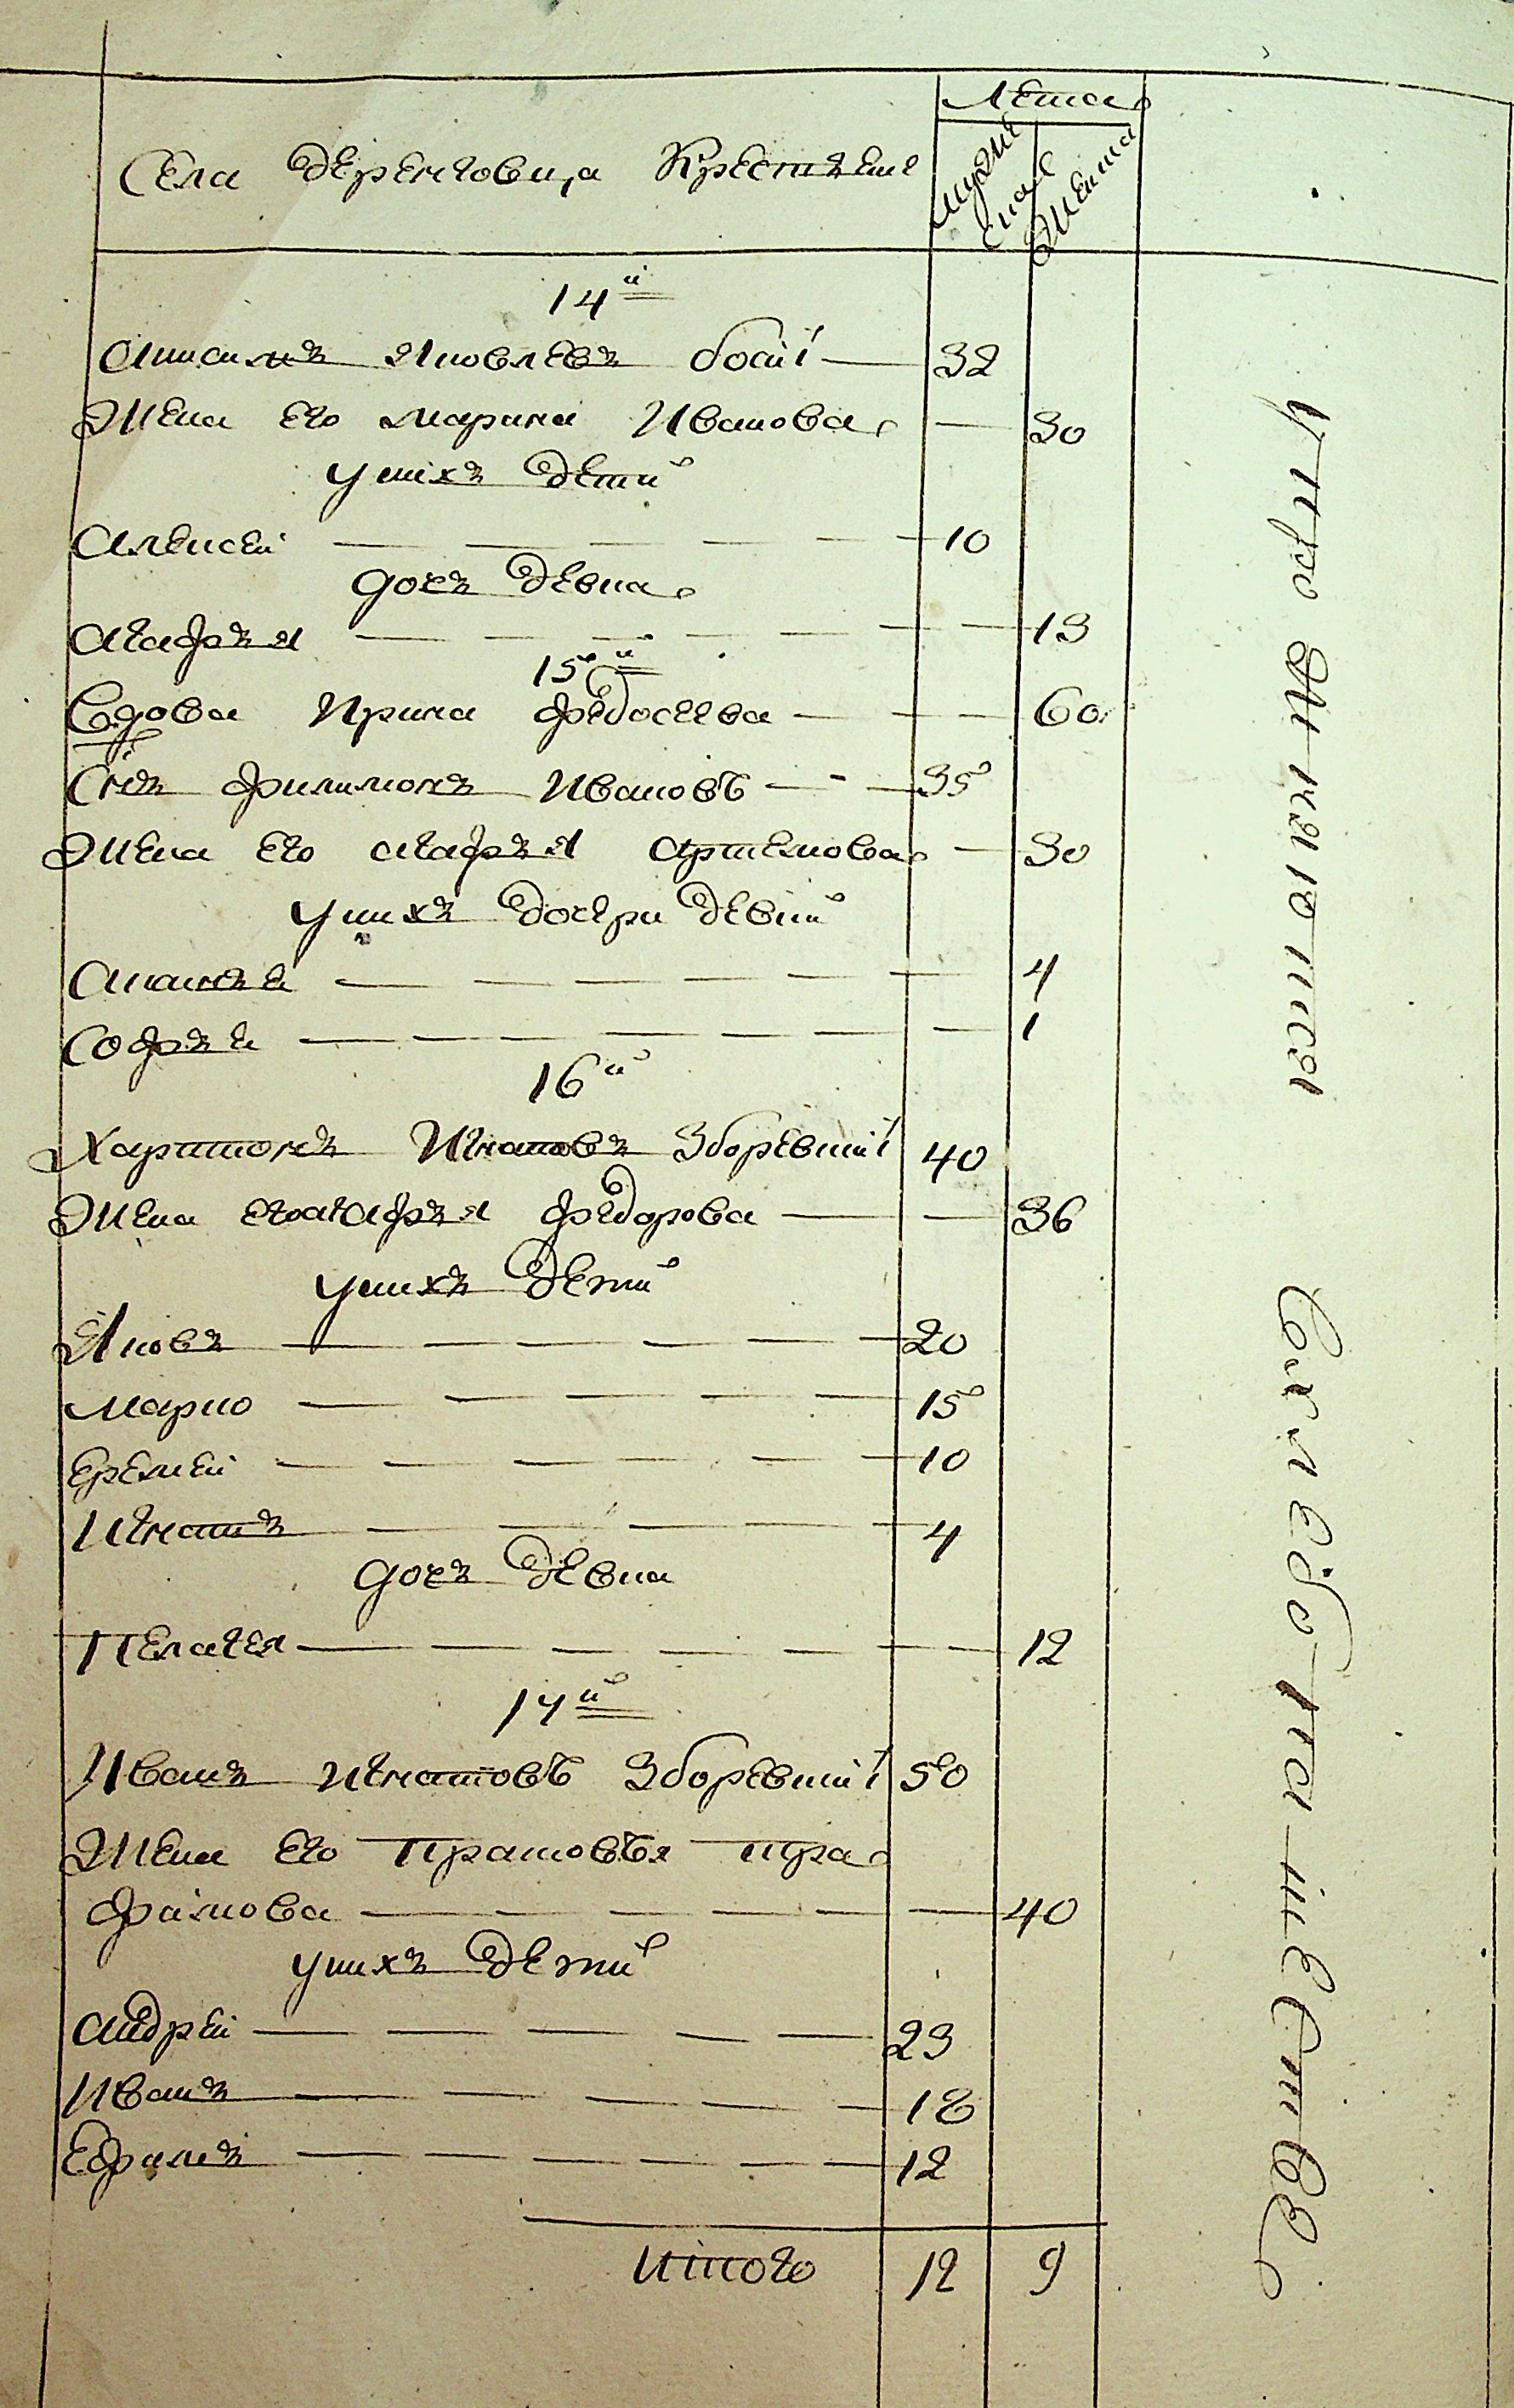 Лета
Села Деренговца Крестяне
мужи
ска
женска
14й
Яковлевъ босій 32
Жена его марина Иванова 30
унихъ детй
Алексей 10
дочъ девка
Агафъя 13
15й
Вдова Ирина федосеева 60
Снъ филимонъ Ивановъ 35
Жена его агафъя артемова 30
унихъ дочери девкй
4
Софъя 1
16й
Харитонъ Игнатовъ Зборевский 40
Жена егоагафъя федорова 36
унихъ детй
Яковъ 20
марко 15
еремей 10
Игнатъ 4
дочъ девка
Пелагея 12
17й
Иванъ игнатовъ Зборевский 50
Жена его прасковья тра
фимова 40
унихъ детй
андрей 23
Иванъ 18
Ефимъ 12
итого 12 9